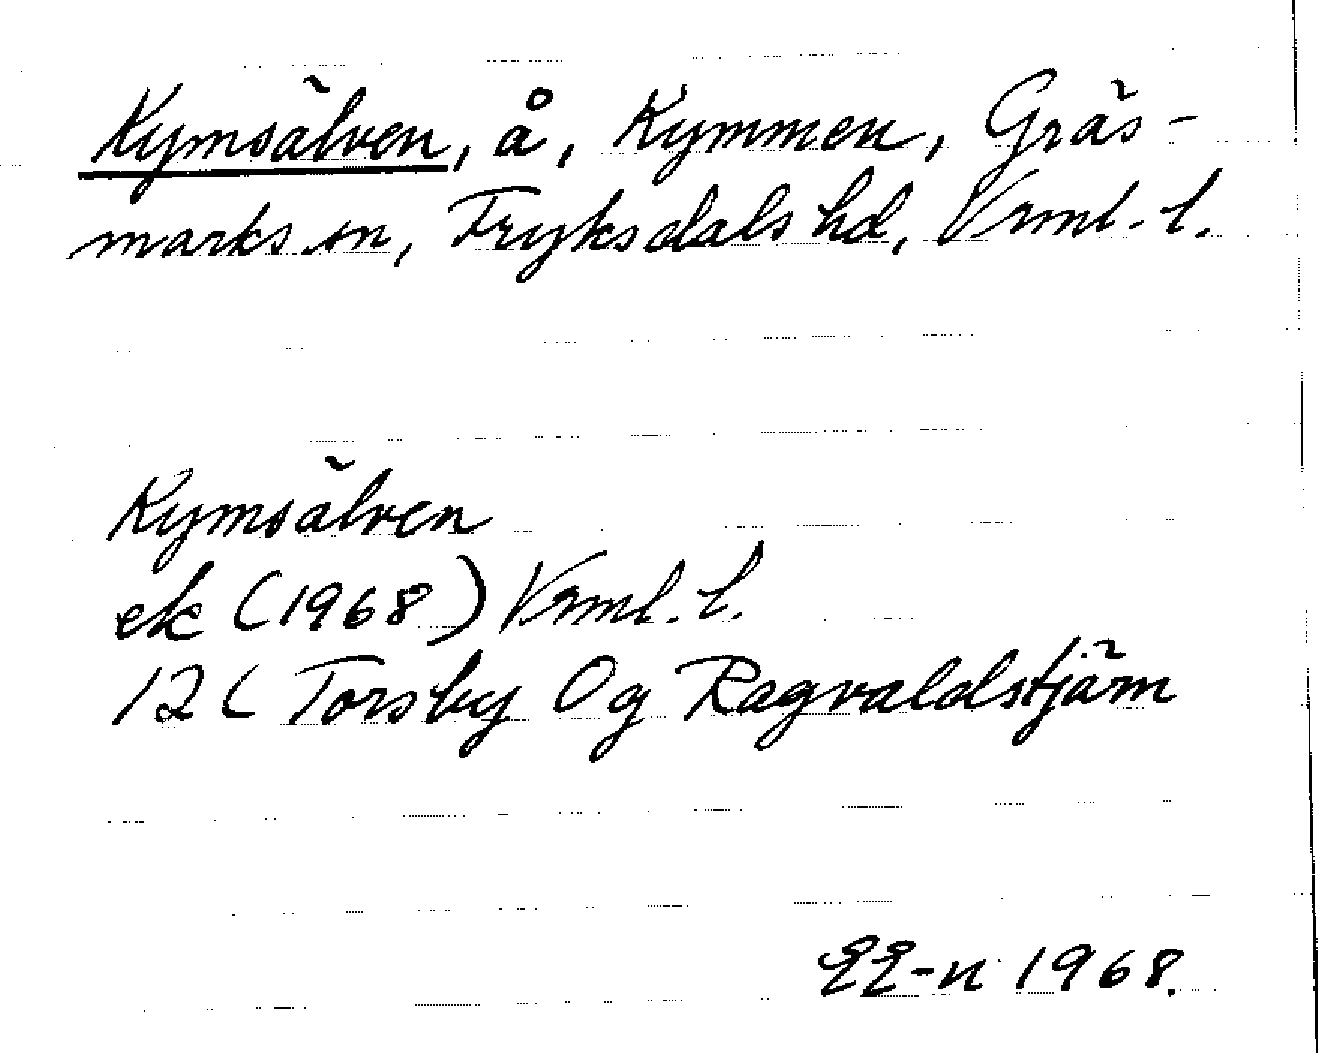 Kymsälven, å, Kymmen, Gräs-
marks sn, Fryksdals hd, Vrml. l.
Kymsälven
ek (1968) Vrml. l.
12C Torsby Og Ragvaldstjärn
EE-n 1968.